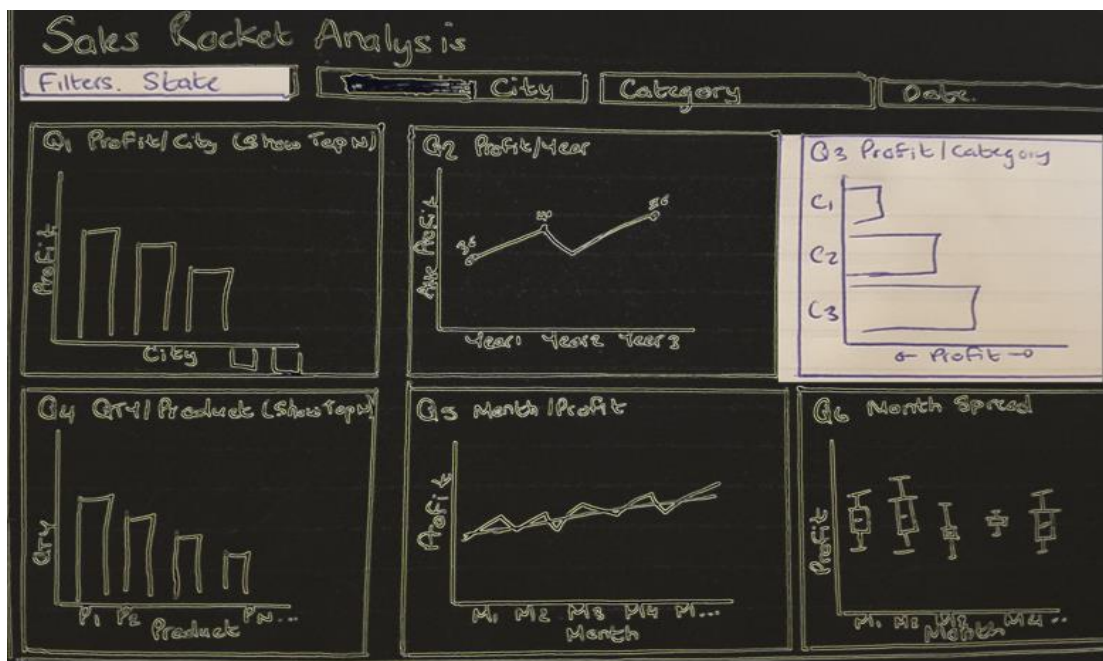 Sales Rocket Analysis
Filters. State
City
Category
Date.
Q1 Profit/City (Show Top N)
Profit
City
Q2 Profit/Year
Profit
Year1 Year2 Year3
Q3 Profit/Category
C1
C2
C3
← Profit →
Q4 QTY/Product (Show Top N)
QTY
P1 P2 PN...
Product
Q5 Month/Profit
Profit
M1 M2 M3 M4 M...
Month
Q6 Month Spread
Profit
M1 M2 M3 M4..
Month